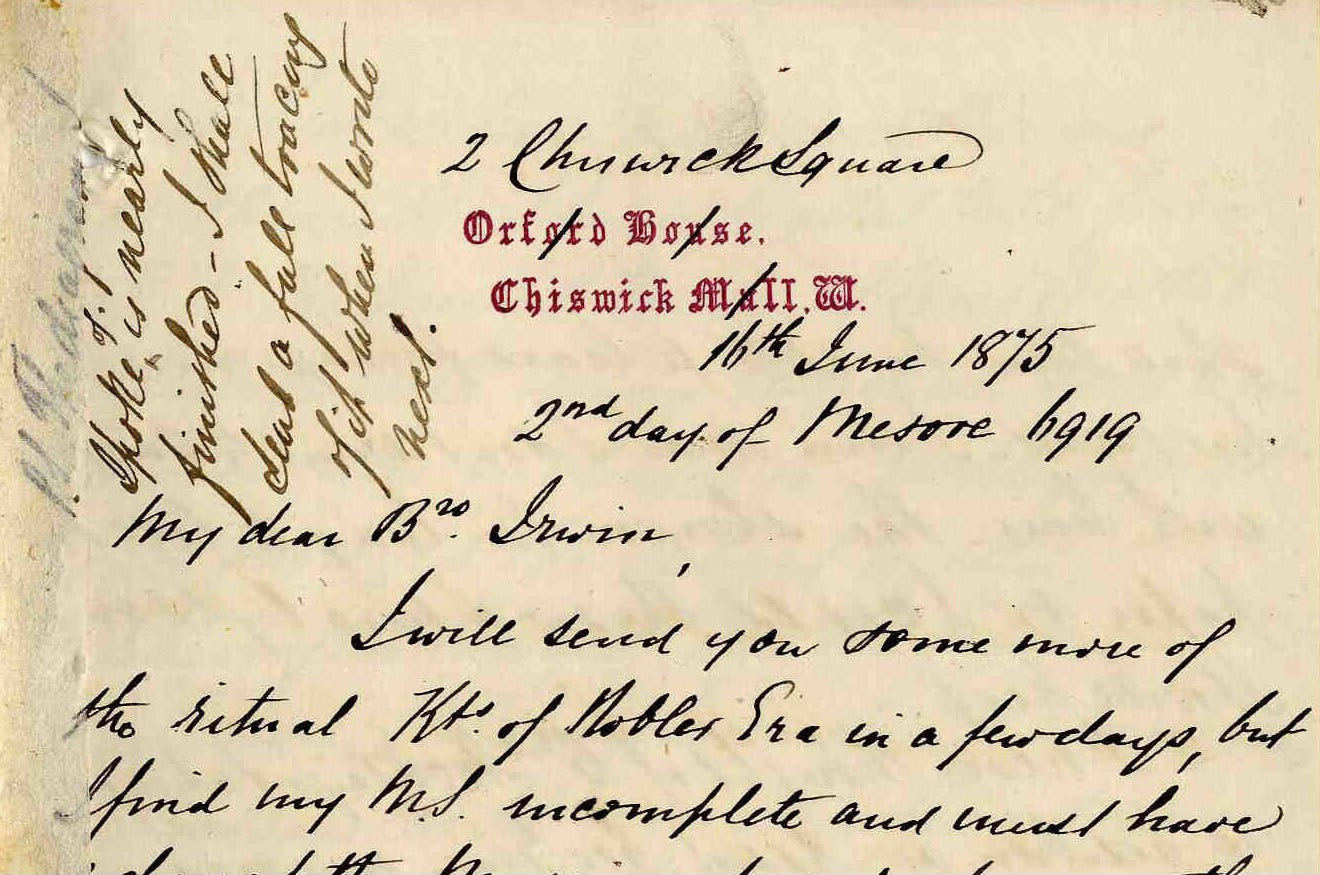 2 Chiswick Square
Orford House.
Chiswick Mall, W.
16th June 1875
2nd day of Mesore 6919
My dear Bro. Irwin,
I will send you some more of
the ritual Kts. of Nobler Era in a few days, but
I find my M.S. incomplete and must have
Spoke is nearly
finished - I shall
send a full tracing
of it when I write
next.